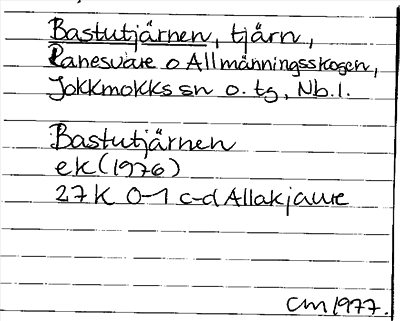 Bastutjärnen, tjärn,
Ranesvare o Allmänningsskogen,
Jokkmokks sn o. tg, Nb.l.
Bastutjärnen
ek (1976)
27 K 0-1 c-d Allakjaure
CM 1977.